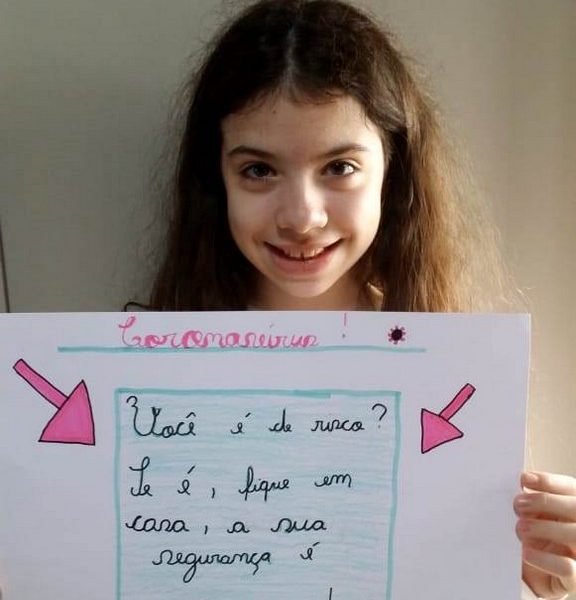 Coronavírus !
Você é de risco?
Se é, fique em
casa, a sua
segurança é